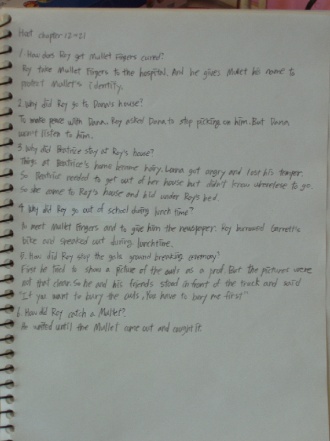 Hoot chapter 12~21
1. How does Roy get Mullet Fingers cured?
Roy take Mullet Fingers to the hospital. And he gives Mullet his name to
protect Mullet's identity.
2. Why did Roy go to Dana's house?
To make peace with Dana. Roy asked Dana to stop picking on him. But Dana
won't listen to him.
3. Why did Beatrice stay at Roy's house?
Things at Beatrice's home became hairy. Lonna got angry and lost his temper.
So Beatrice needed to get out of her house but didn't know where to go.
So she came to Roy's house and hid under Roy's bed.
4. Why did Roy go out of school during lunch time?
To meet Mullet Fingers and to give him the newspaper. Roy borrowed Garrett's
bike and sneaked out during lunchtime.
5. How did Roy stop the gala ground breaking ceremony?
First he tried to show a picture of the owls as a proof. But the pictures were
not that clear. So he and his friends stood in front of the truck and said
"If you want to bury the owls, You have to bury me first"
6. How did Roy catch a Mullet?
He waited until the Mullet came out and caught it.